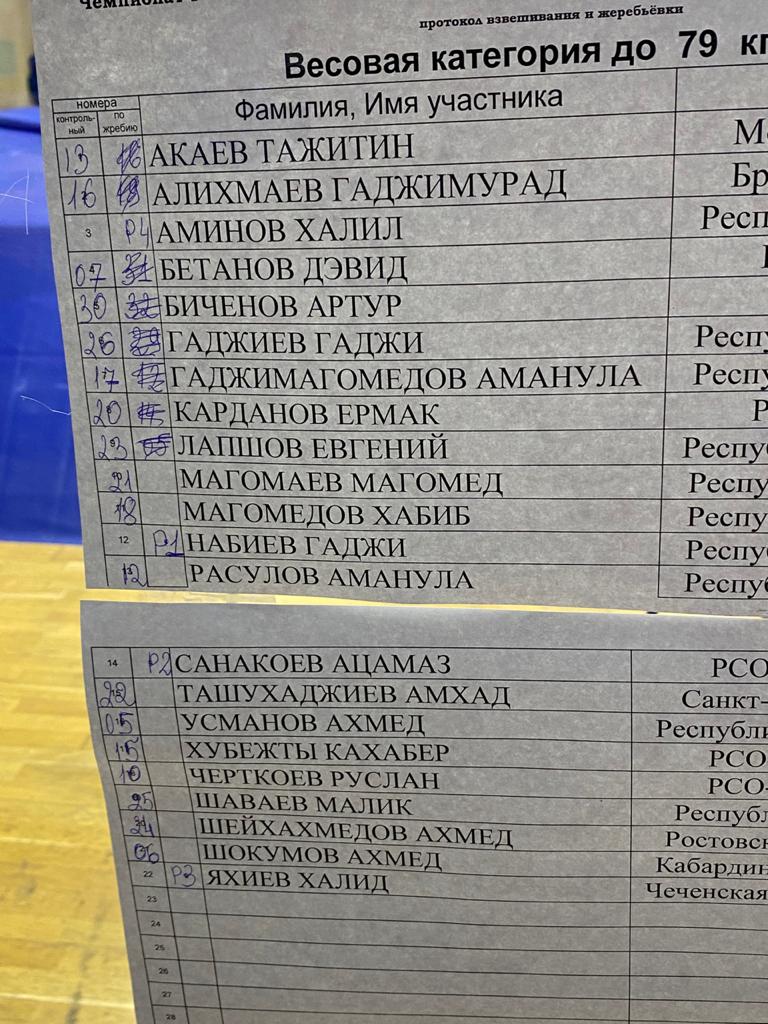 протокол взвешивания и жеребьёвки
Весовая категория до 79 кг
номера
контроль-ный по жребию Фамилия, Имя участника
13 АКАЕВ ТАЖИТИН
16 АЛИХМАЕВ ГАДЖИМУРАД Бр
3 P4 АМИНОВ ХАЛИЛ Респ
07 БЕТАНОВ ДЭВИД
30 БИЧЕНОВ АРТУР
26 ГАДЖИЕВ ГАДЖИ Респу
17 ГАДЖИМАГОМЕДОВ АМАНУЛА Респу
20 КАРДАНОВ ЕРМАК Р
23 ЛАПШОВ ЕВГЕНИЙ Респу
21 МАГОМАЕВ МАГОМЕД Респу
18 МАГОМЕДОВ ХАБИБ Респу
12 P1 НАБИЕВ ГАДЖИ Респу
12 РАСУЛОВ АМАНУЛА Респу
14 P2 САНАКОЕВ АЦАМАЗ РСО
22 ТАШУХАДЖИЕВ АМХАД Санкт-
05 УСМАНОВ АХМЕД Республи
15 ХУБЕЖТЫ КАХАБЕР РСО
10 ЧЕРТКОЕВ РУСЛАН РСО-
25 ШАВАЕВ МАЛИК Республ
ШЕЙХАХМЕДОВ АХМЕД Ростовск
06 ШОКУМОВ АХМЕД Кабардин
22 P3 ЯХИЕВ ХАЛИД Чеченская
23
24
25
26
27
28